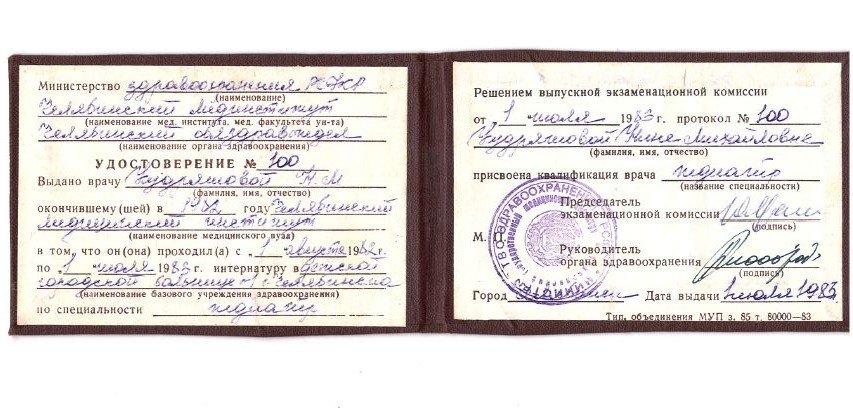 Министерство здравоохранения
(наименование)
Челябинский мединститут
(наименование мед. института, мед. факультета ун-та)
Челябинский облздравотдел
(наименование органа здравоохранения)
УДОСТОВЕРЕНИЕ № 100
Выдано врачу Кудряшовой Н М
(фамилия, имя, отчество)
окончившему(шей) в 1982 году Челябинский
медицинский институт
(наименование медицинского вуза)
в том, что он(она) проходил(а) с 1 августа 1982 г.
по 1 июля 1983 г. интернатуру в детской
городской больнице г. Челябинска
(наименование базового учреждения здравоохранения)
по специальности педиатр
Решением выпускной экзаменационной комиссии
от 1 июля 1983 г. протокол № 100
Кудряшовой Нине Михайловне
(фамилия, имя, отчество)
присвоена квалификация врача педиатр
(название специальности)
Председатель
экзаменационной комиссии
(подпись)
М.
Руководитель
органа здравоохранения
(подпись)
Город Дата выдачи 1 июля 1983
Тип. объединения МУП з. 85 т. 80000—83